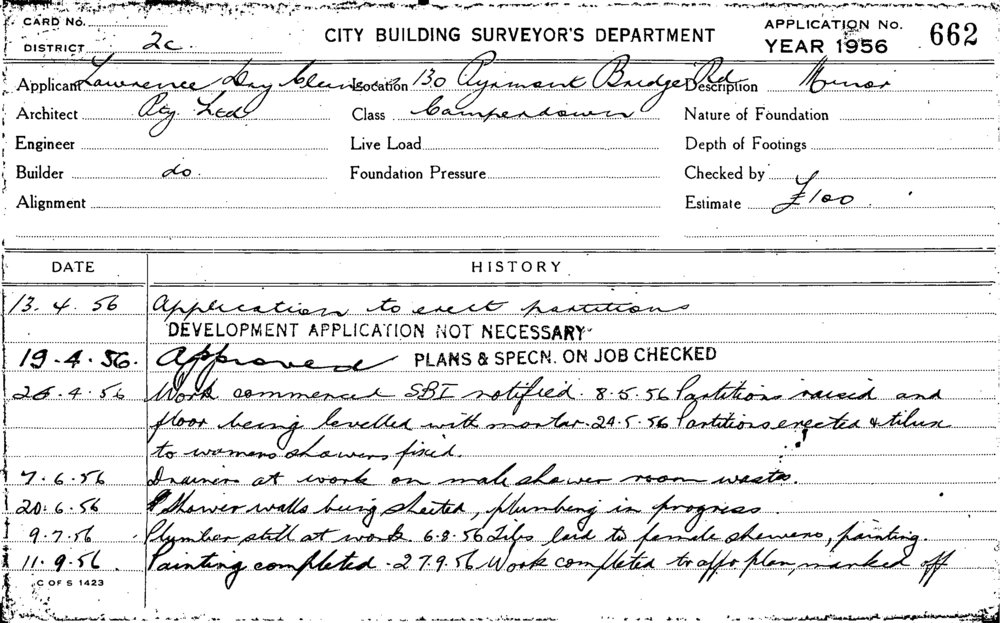 CARD No. CITY BUILDING SURVEYOR'S DEPARTMENT APPLICATION No. 662
DISTRICT 2c. YEAR 1956
Applicant Lawrence Dry Cleaners Location 130 Pyrmont Bridge Rd Description Minor
Architect Pty. Ltd Class Camperdown Nature of Foundation
Engineer Live Load Depth of Footings
Builder do. Foundation Pressure Checked by
Alignment Estimate £100
DATE HISTORY
13. 4. 56 Application to erect partitions
DEVELOPMENT APPLICATION NOT NECESSARY
19. 4. 56. Approved PLANS & SPECN. ON JOB CHECKED
26. 4. 56 Work commenced SBI notified. 8.5.56 Partitions raised and
floor being levelled with mortar. 24.5.56 Partitions erected &
to womens showers fixed.
7. 6. 56 Drainers at work on male shower room waste.
20. 6. 56 Shower walls being sheeted, plumbing in progress
9. 7. 56 Plumber still at work. 6.8.56 Tiles laid to female showers, painting.
11. 9. 56 Painting completed. 27.9.56 Work completed to appr plan, marked off
C OF S 1423